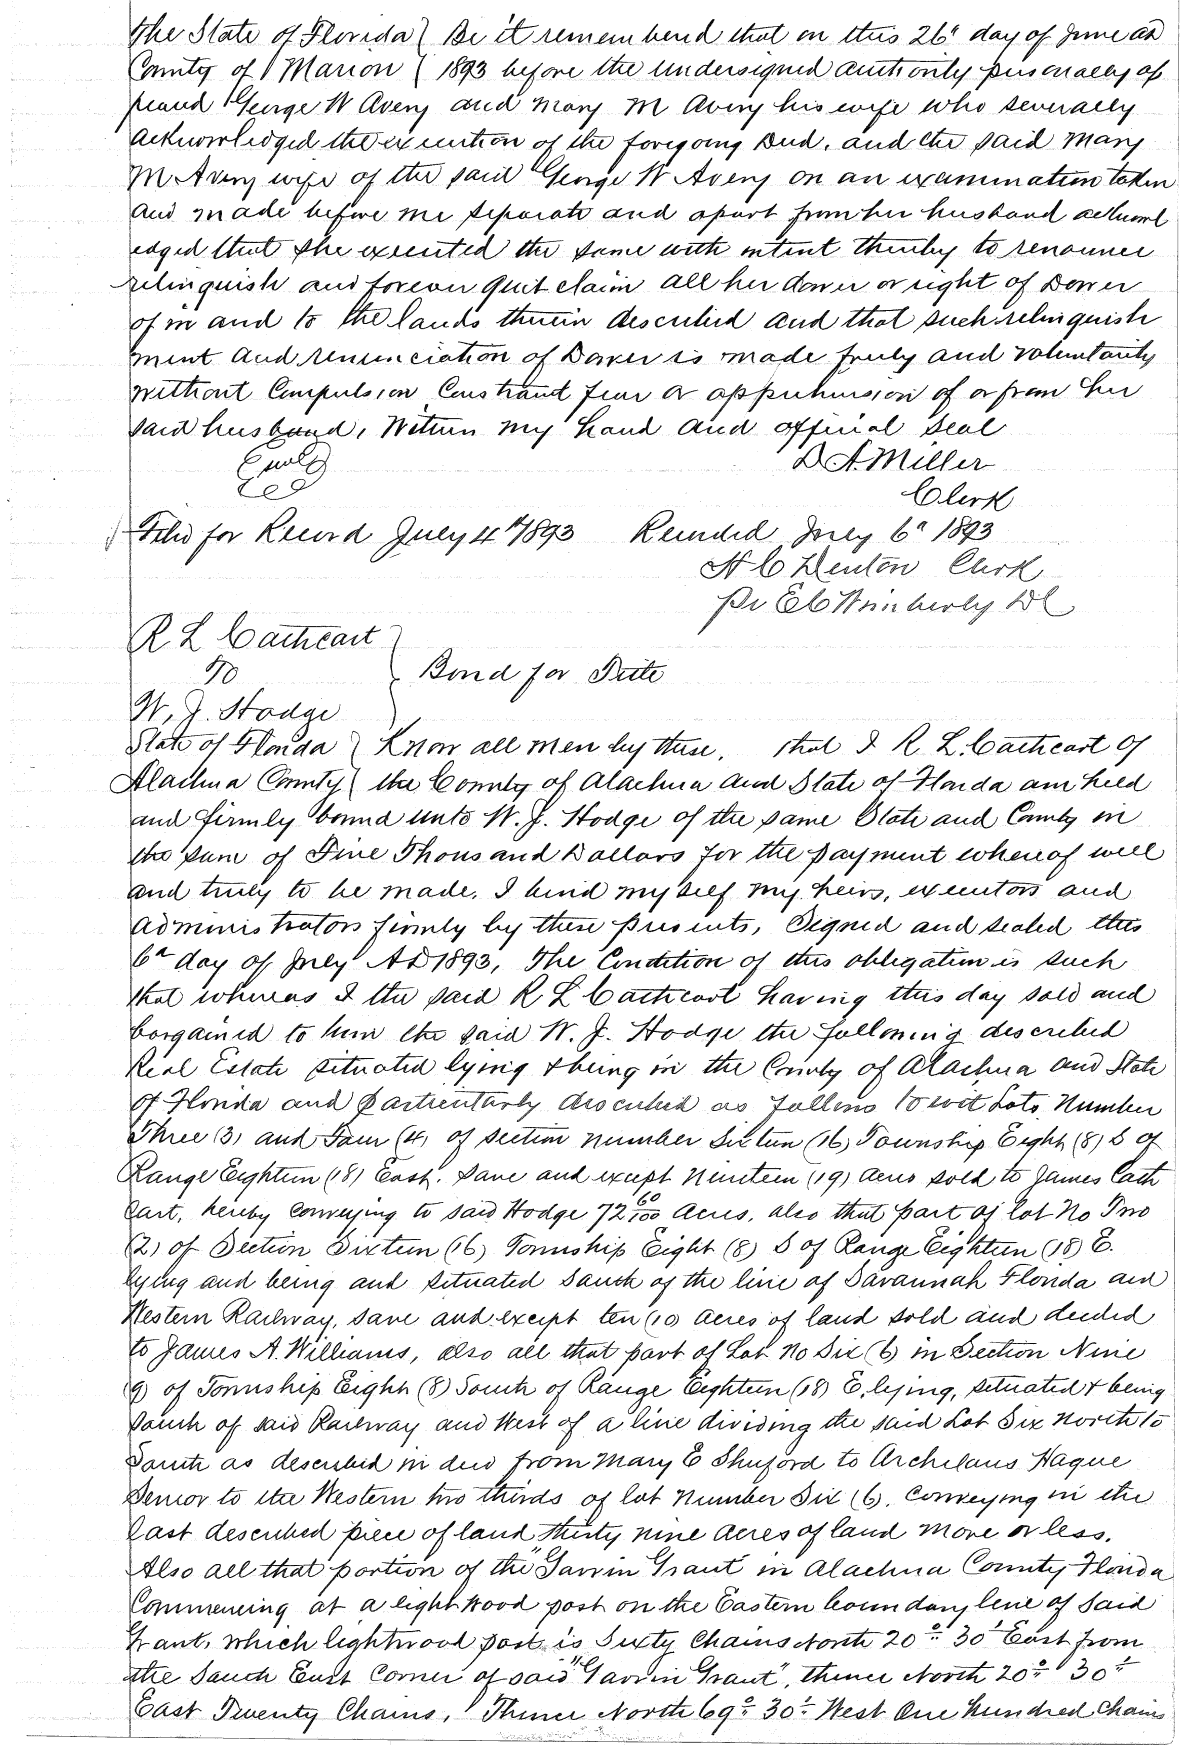 The State of Florida } Be it remembered that on this 26" day of June AD
County of Marion } 1893 before the undersigned authority personally ap
peared George W Avery and Mary M Avery his wife who severally
acknowledged the execution of the foregoing Deed, and the said Mary
M Avery wife of the said George W Avery on an examination taken
and made before me separate and apart from her husband acknowl
edged that she executed the same with intent thereby to renounce
relinquish and forever quit claim all her dower or right of Dower
of in and to the lands therein described and that such relinquish
ment and renunciation of Dower is made freely and voluntarily
without Compulsion Constraint fear or apprehension of or from her
said husband, Witness my hand and official Seal
D A. Miller
Clerk
Filed for Record July 4th 1893 Recorded July 6" 1893
H C Denton Clerk
Pr E C Wimberly DC
R L Cathcart
To } Bond for Title
W, J. Hodge
State of Florida } Know all men by these, that I R L. Cathcart of
Alachua County } the County of Alachua and State of Florida am held
and firmly bound unto W. J. Hodge of the same State and County in
the sum of Five Thousand Dollars for the payment whereof well
and truly to be made, I bind myself my heirs, executors and
administrators firmly by these presents, Signed and sealed this
6" day of July AD 1893, The Condition of this obligation is such
that whereas I the said R L Cathcart having this day sold and
bargained to him the said W. J. Hodge the following described
Real Estate situated lying & being in the County of Alachua and State
of Florida and particularly described as follows to wit Lots Number
Three (3) and Four (4) of section number Sixteen (16) Township Eight (8) S of
Range Eighteen (18) East. save and except Nineteen (19) acres sold to James Cath
cart, hereby conveying to said Hodge 72 60/100 acres, also that part of lot No Two
(2) of Section Sixteen (16) Township Eight (8) S of Range Eighteen (18) E.
lying and being and situated South of the line of Savannah Florida and
Western Railway, save and except ten (10 acres of land sold and deeded
to James A. Williams, also all that part of Lot No Six (6) in Section Nine
9) of Township Eight (8) South of Range Eighteen (18) E, lying, situated & being
South of said Railway and West of a line dividing the said Lot Six North to
South as described in deed from Mary E Shuford to Archelaus Hague
Senior to the Western two thirds of lot number Six (6). Conveying in the
last described piece of land thirty nine acres of land more or less.
Also all that portion of the "Garvin Grant" in Alachua County Florida
Commencing at a lightwood post on the Eastern boundary line of said
Grant, which lightwood post is Sixty Chains North 20° 30' East from
the South East Corner of said "Garvin Grant", thence North 20° 30'
East Twenty Chains, Thence North 69° 30' West One hundred Chains